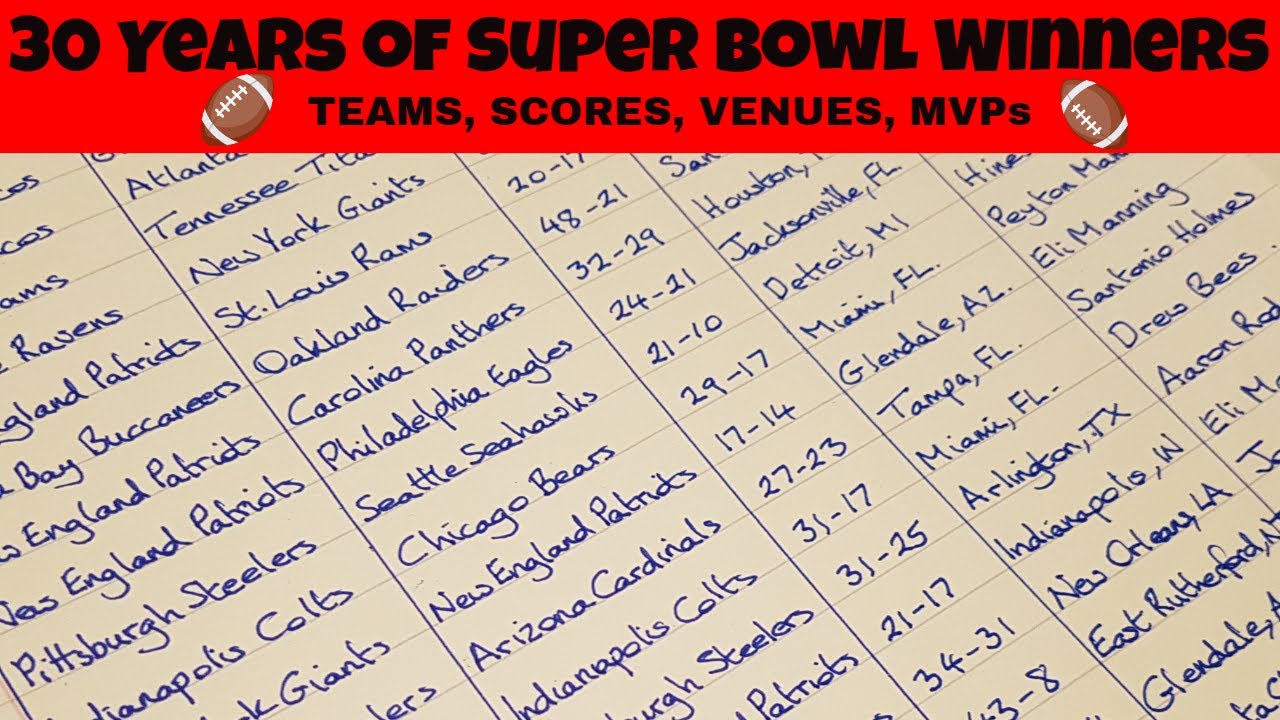 30 Years of Super Bowl Winners
TEAMS, SCORES, VENUES, MVPs
cos
cos Atlanta
ams Tennessee Tita
Ravens New York Giants
gland Patriots St. Louis Rams 20-17
Bay Buccaneers Oakland Raiders 48-21 San
w England Patriots Carolina Panthers 32-29 Houston,
New England Patriots Philadelphia Eagles 24-21 Jacksonville, FL.
Pittsburgh Steelers Seattle Seahawks 21-10 Detroit, MI Hines
ndianapolis Colts Chicago Bears 29-17 Miami, FL. Peyton Man
k Giants New England Patriots 17-14 Glendale, AZ. Eli Manning
lers Arizona Cardinals 27-23 Tampa, FL. Santonio Holmes
Indianapolis Colts 31-17 Miami, FL. Drew Bees
burgh Steelers 31-25 Arlington, TX Aaron Rod
Patriots 21-17 Indianapolis, IN Eli Ma
34-31 New Orleans, LA Jo
43-8 East Rutherford, N
Glendale, A